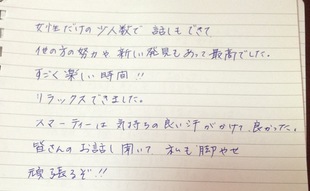 女性だけの少人数で 話しもできて
他の方の努力や新しい発見もあって最高でした。
すごく楽しい時間!!
リラックスできました。
スマーティーは気持ちの良い汗がかけて、良かった。
皆さんのお話し聞いて 私も脚やせ
頑張るぞ!!